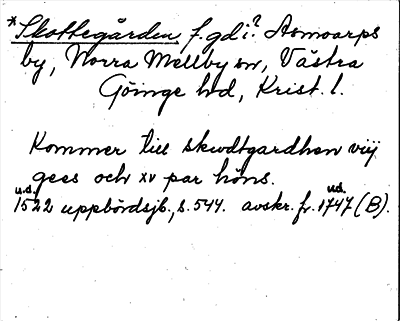 *Skottegården f.gd i? Asmoarps
by, Norra Mellby sn, Västra
Göinge hd, Krist. l.
Kommer till skwdtgardhen viij
gees och xv par höns.
u.s. u.d.
1522 uppbördsjb., s. 544. avskr. fr. 1747 (B).